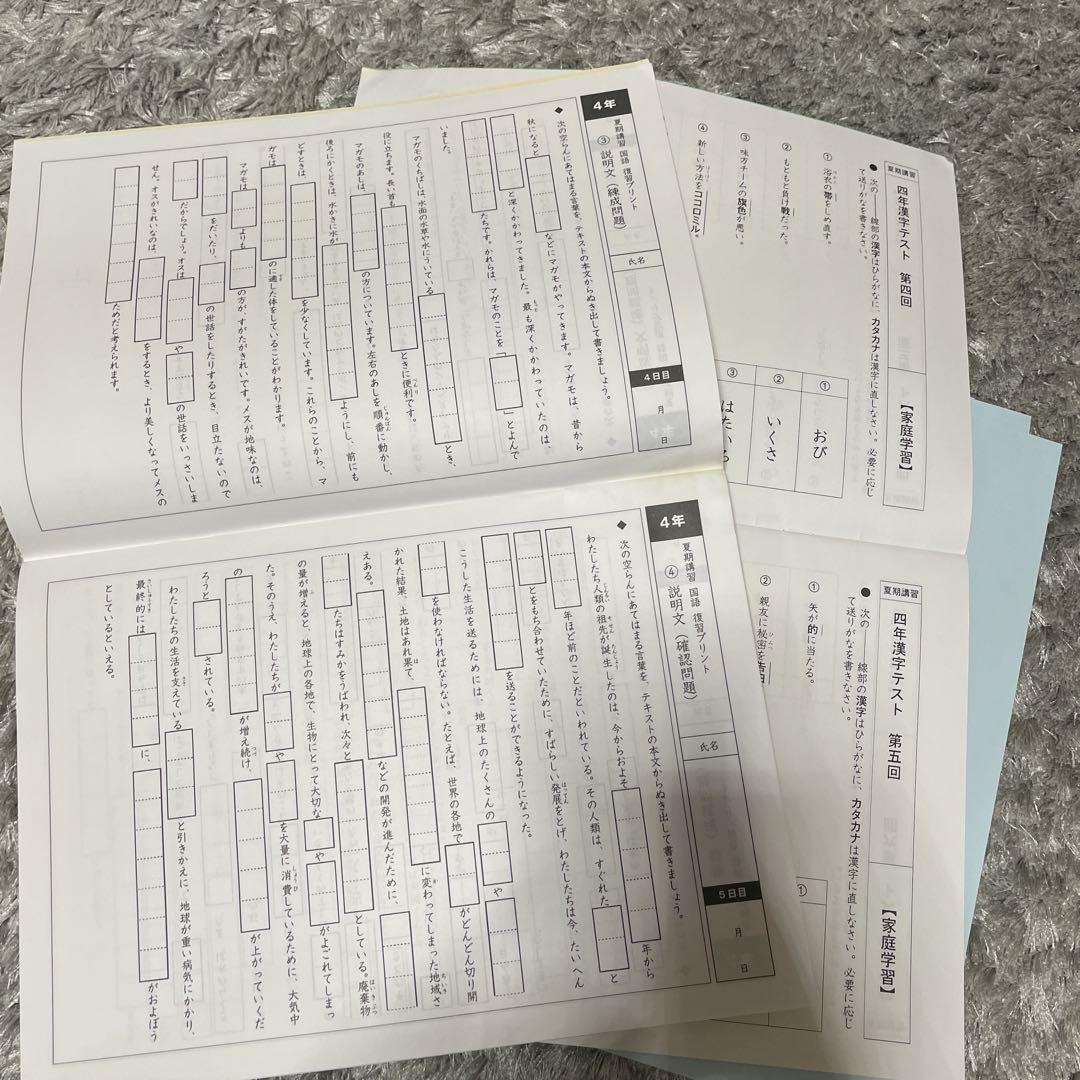 4年
夏期講習 国語 復習プリント
③ 説明文（練成問題）
氏名
4日目
月 日
◆ 次の空らんにあてはまる言葉を、テキストの本文からぬき出して書きましょう。
秋になると などにマガモがやってきます。マガモは、昔から
と深くかかわってきました。最も深くかかわっていたのは、
たちです。かれらは、マガモのことを「 」とよんで
いました。
マガモのくちばしは、水面の水草や水にういている とき、
役に立ちます。長い首も ときに便利です。
マガモのあしは、 の方についています。左右のあしを順番に動かし、
後ろにかくときは、水かきに水が ようにし、前にも
どすときは、 を少なくしています。これらのことから、マ
ガモは のに適した体をしていることがわかります。
マガモは より の方が、すがたがきれいです。メスが地味なのは、
をだいたり、 の世話をしたりするとき、目立たないので
だからでしょう。オスは や の世話をいっさいしま
せん。オスがきれいなのは、 をするとき、より美しくなってメスの
ためだと考えられます。
4年
夏期講習 国語 復習プリント
④ 説明文（確認問題）
氏名
5日目
月 日
◆ 次の空らんにあてはまる言葉を、テキストの本文からぬき出して書きましょう。
わたしたち人類の祖先が誕生したのは、今からおよそ 年から
年ほど前のことだといわれている。その人類は、すぐれた と
とをもち合わせていたために、すばらしい発展をとげ、わたしたちは今、たいへん
を送ることができるようになった。
こうした生活を送るためには、地球上のたくさんの や
を使わなければならない。たとえば、世界の各地で がどんどん切り開
かれた結果、土地はあれ果て、 に変わってしまった地域さ
えある。 などの開発が進んだために、
たちはすみかをうばわれ、次々と としている。廃棄物
の量が増えると、地球上の各地で、生物にとって大切な や がよごれてしまっ
た。そのうえ、わたしたちが や を大量に消費しているために、大気中
の が増え続け、 が上がっていくだ
ろうと されている。
わたしたちの生活を支えている と引きかえに、地球が重い病気にかかり、
最終的には に、 がおよぼう
としているといえる。
夏期講習
四年漢字テスト 第四回
【家庭学習】
● 次の――線部の漢字はひらがなに、カタカナは漢字に直しなさい。必要に応じ
て送りがなを書きなさい。
① 浴衣の帯をしめ直す。
② もともと負け戦だった。
③ 味方チームの旗色が悪い。
④ 新しい方法をココロミル。
① おび
② いくさ
③
夏期講習
四年漢字テスト 第五回
【家庭学習】
● 次の――線部の漢字はひらがなに、カタカナは漢字に直しなさい。必要に応じ
て送りがなを書きなさい。
① 矢が的に当たる。
② 親友に秘密を
①